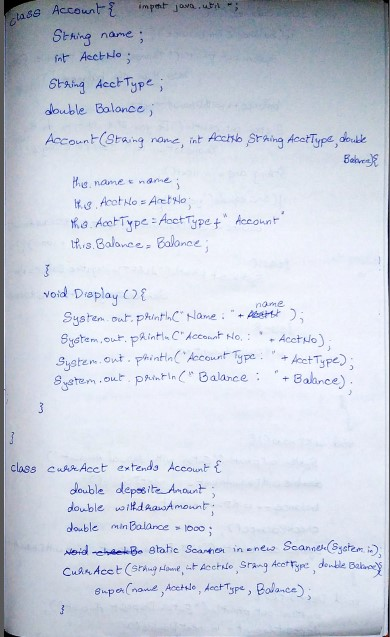 class Account { import java.util.*;
String name ;
int AcctNo ;
String AcctType ;
double Balance ;
Account (String name, int AcctNo, String AcctType, double
Balance) {
this.name = name ;
this.AcctNo = AcctNo ;
this.AcctType = AcctType + " Account"
this.Balance = Balance ;
}
void Display () {
name
System.out.println(" Name : " + );
System.out.println(" Account No. : " + AcctNo) ;
System.out.println(" Account Type : " + AcctType) ;
System.out.println(" Balance : " + Balance) ;
}
}
class currAcct extends Account {
double depositeAmount ;
double withdrawAmount ;
double minBalance = 1000 ;
void checkBa static Scanner in = new Scanner(System.in);
CurrAcct (String Name, int AcctNo, String AcctType, double Balance){
super (name, AcctNo, AcctType, Balance) ;
}